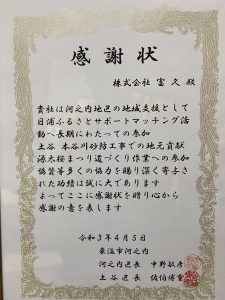 感謝状
株式会社 富久 殿
貴社は河之内地区の地域支援として
日浦ふるさとサポートマッチング活
動へ長期にわたっての参加
土谷 本谷川砂防工事での地元貢献
源太桜まつり道づくり作業への参加
協賛等多くの協力を賜り深く寄与さ
れた功績は誠に大であります
よってここに感謝状を贈り心から
感謝の意を表します
令和3年4月5日
東温市河之内
河之内区長 中野敏彦
土谷区長 佐伯博重